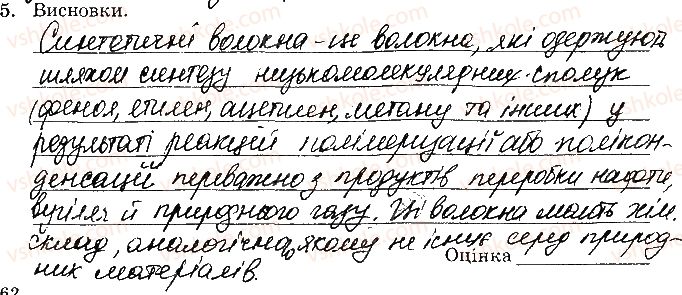 5. Висновки.
Синтетичні волокна - це волокна, які одержують
шляхом синтезу низькомолекулярних сполук
(фенол, етилен, ацетилен, метану та інших) у
результаті реакцій полімеризації або полікон-
денсацій переважно з продуктів переробки нафти,
вугілля й природнього газу. Ці волокна мають хім.
склад, аналогічна якому не існує серед природ-
них матеріалів.
Оцінка
62